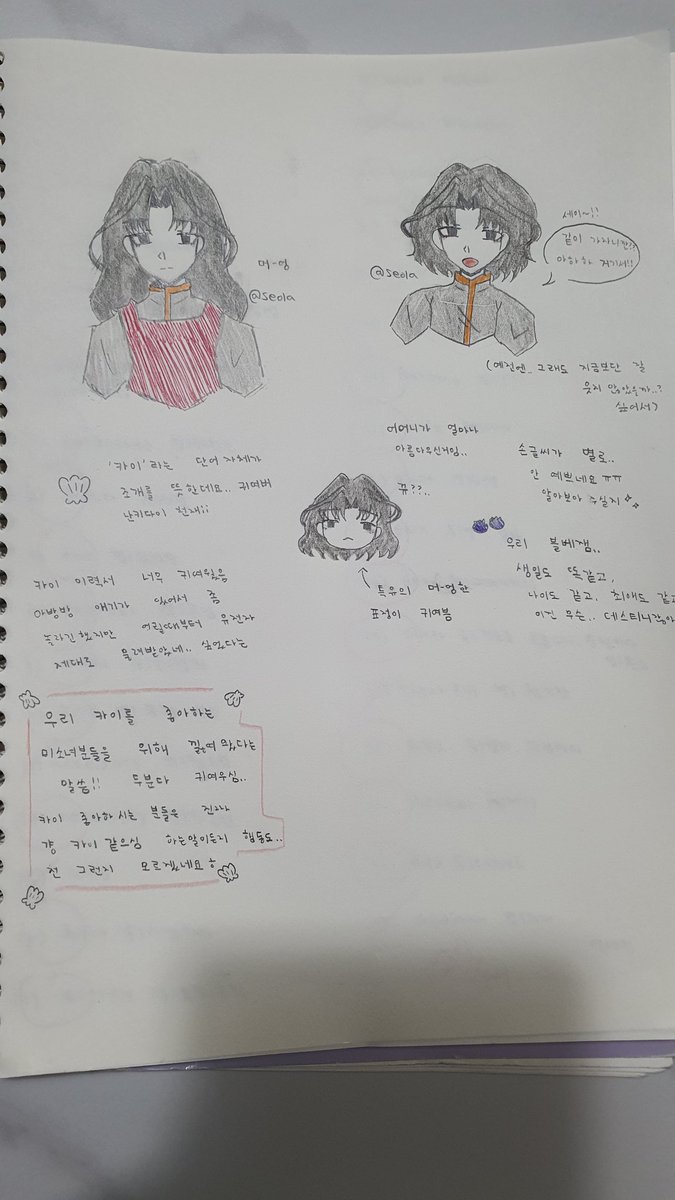 머-엉
@seola
@seola
세이~!!
같이 가자니깐??
아하하 저기서!!
(예전엔.. 그래도 지금보단 잘
웃지 않았을까..?
싶어서)
'카이' 라는 단어 자체가
조개를 뜻한데요.. 귀여버
난키다이 천재;;
어머니가 얼마나
아름다우신거임..
뀨??..
특유의 머-엉한
표정이 귀여븜
손글씨가 별로..
안 예쁘네요 ㅠㅠ
알아보아 주실지
우리 볼베젬..
생일도 똑같고,
나이도 같고, 최애도 같고
이건 무슨.. 데스티니
카이 이력서 너무 귀여웠음
아방방 얘기가 있어서 좀
놀라긴 했지만 어릴때부터 유전자
제대로 물려받았네.. 싶었다는
우리 카이를 좋아하는
미소녀분들을 위해 끄적여 봤다는
말씀!! 두분다 귀여우심..
카이 좋아하시는 분들은 진짜
걍 카이 같으심 하는말이든지 행동도..
전 그런지 모르겠네요ㅎ